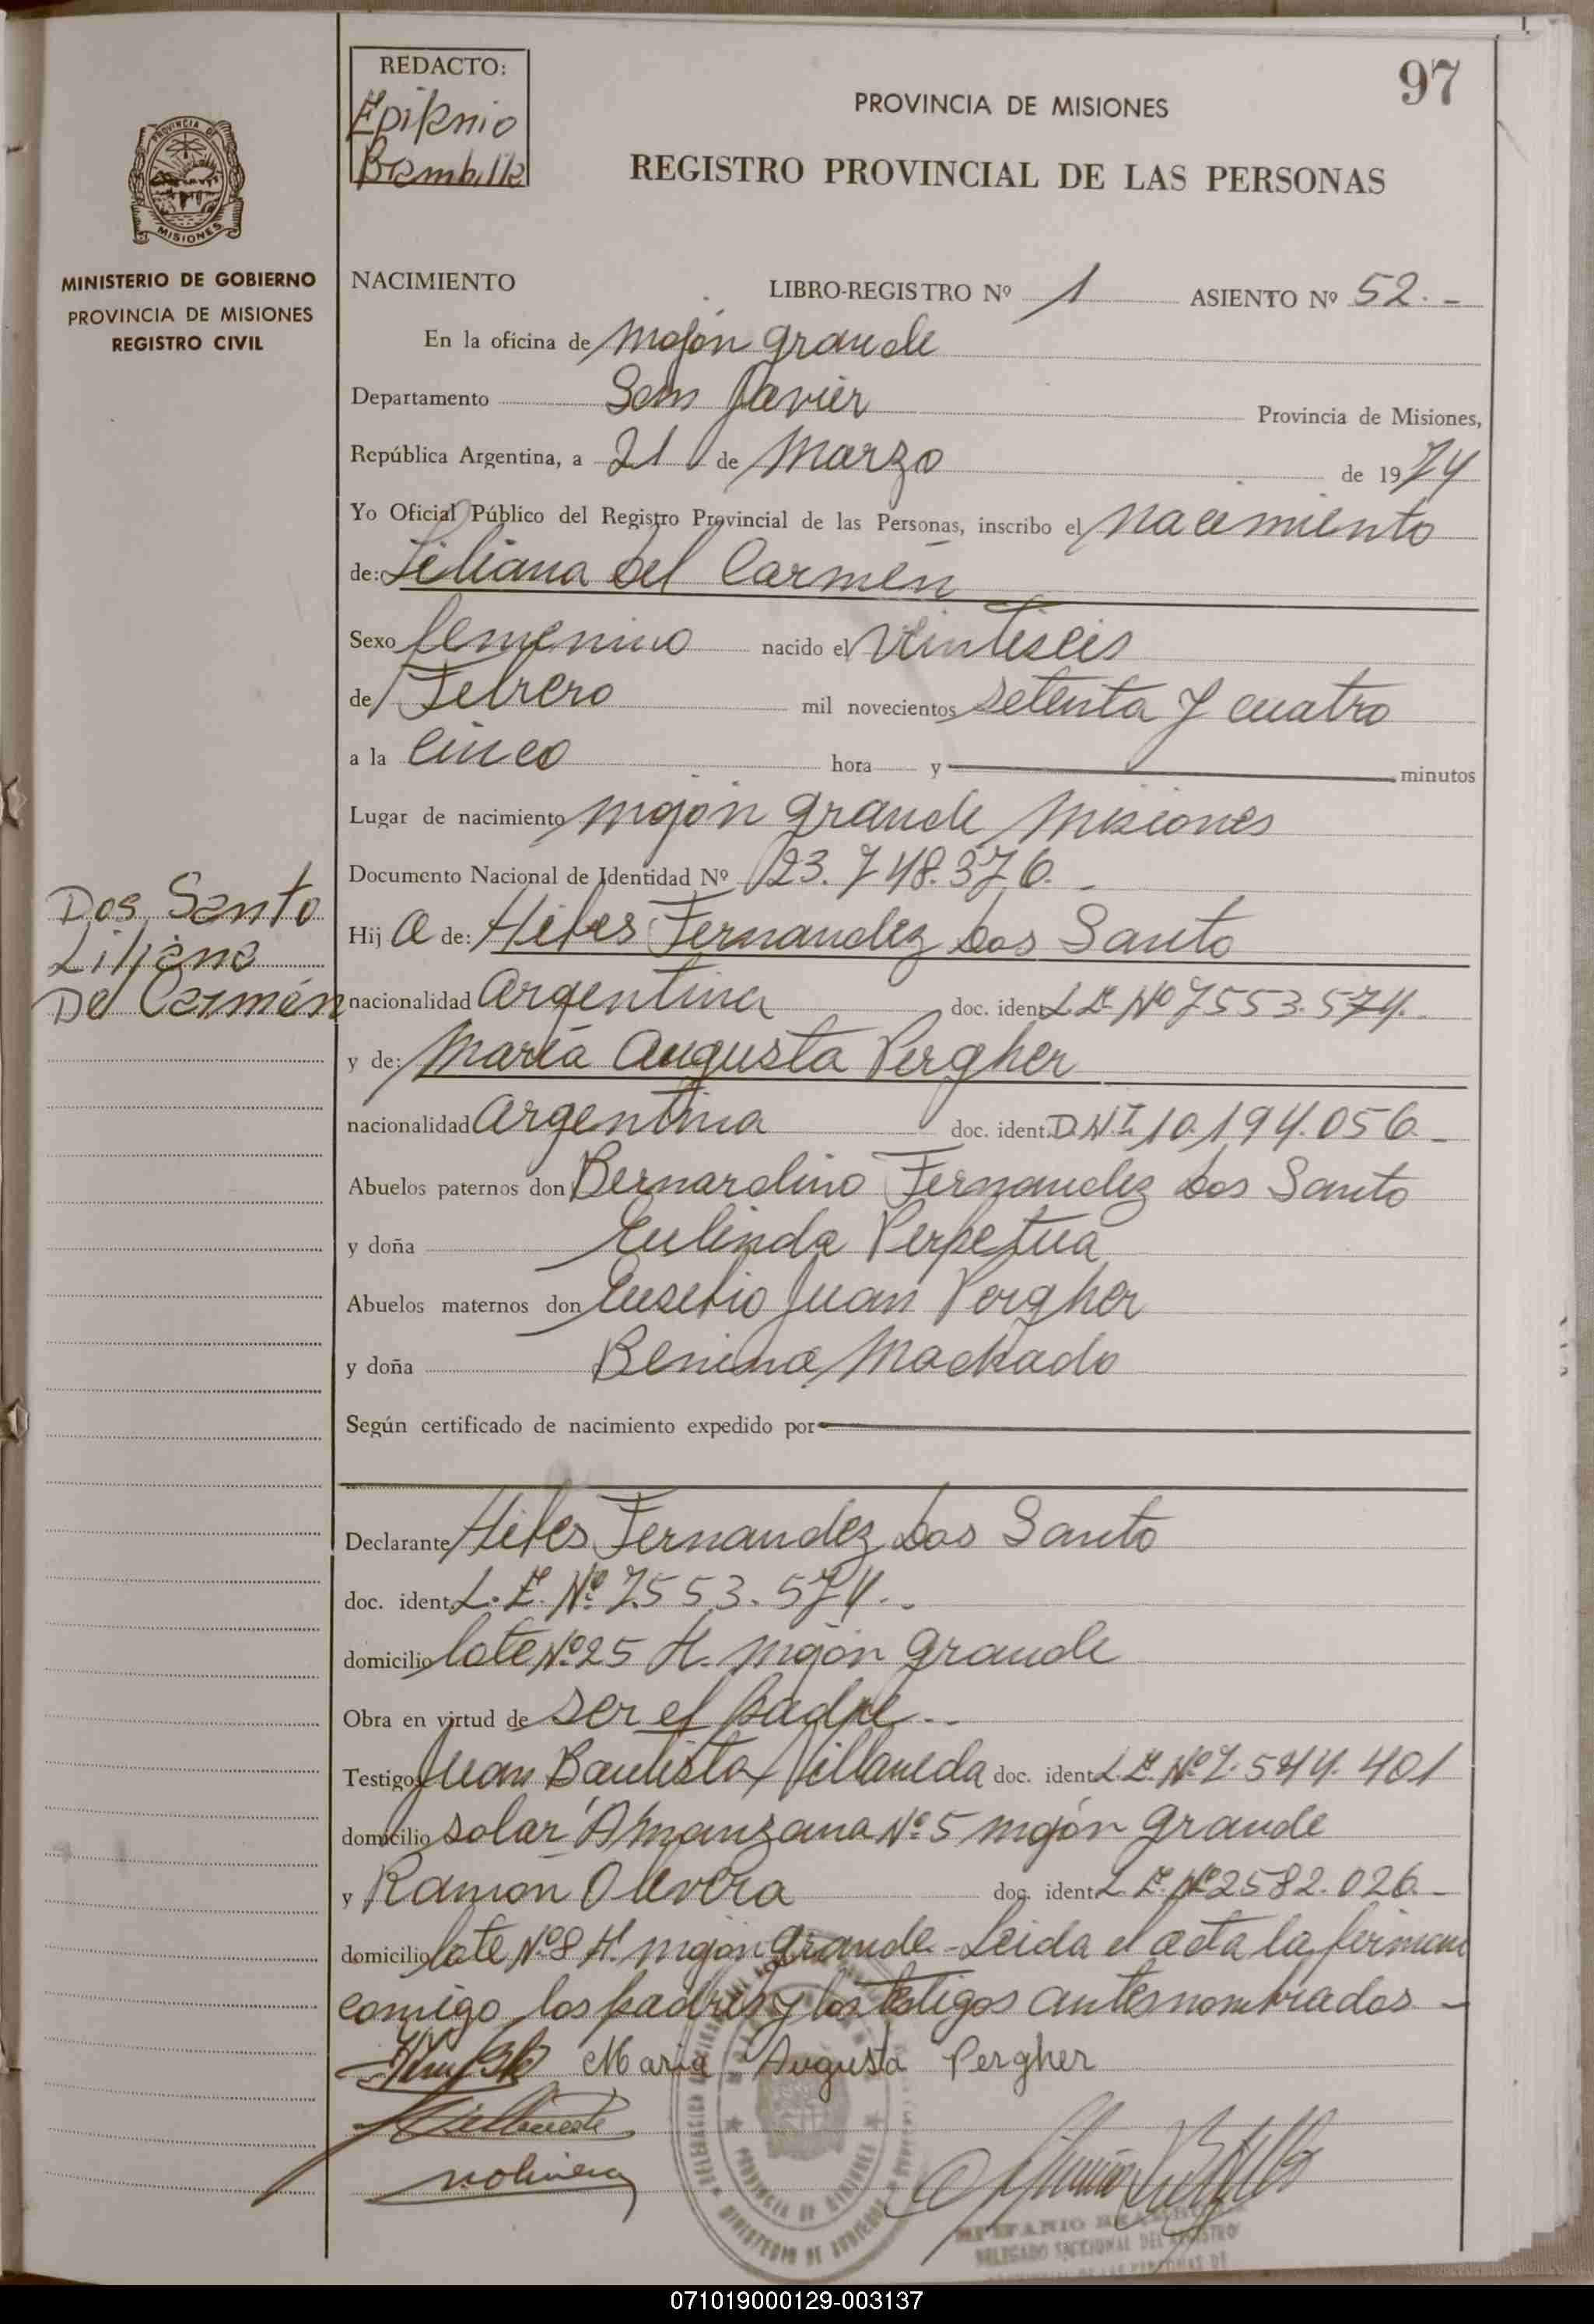 REDACTO:
Epifanio
Brambilla
97
PROVINCIA DE MISIONES
REGISTRO PROVINCIAL DE LAS PERSONAS
PROVINCIA DE
MISIONES
MINISTERIO DE GOBIERNO
PROVINCIA DE MISIONES
REGISTRO CIVIL
NACIMIENTO LIBRO-REGISTRO Nº 1 ASIENTO Nº 52.-
En la oficina de Mojón grande
Departamento San Javier Provincia de Misiones,
República Argentina, a 21 de Marzo de 1974
Yo Oficial Público del Registro Provincial de las Personas, inscribo el Nacimiento
de: Liliana del Carmen
Sexo femenino nacido el Veintiseis
de Febrero mil novecientos setenta y cuatro
a la cinco hora y minutos
Lugar de nacimiento Mojón grande Misiones
Documento Nacional de Identidad Nº 23.748.376.-
Dos Santo
Liliana
Del Carmén
Hija de: Hibes Fernandez dos Santo
nacionalidad Argentina doc. ident. L.E. Nº 7553.574.
y de: María Augusta Pergher
nacionalidad Argentina doc. ident. D.N.I. 10.194.056.-
Abuelos paternos don Bernardino Fernandez dos Santo
y doña Eulinda Perpetua
Abuelos maternos don Eusebio Juan Pergher
y doña Benina Machado
Según certificado de nacimiento expedido por
Declarante Hibes Fernandez dos Santo
doc. ident. L.E. Nº 7.553.574.-
domicilio lote Nº 25 H. Mojón grande
Obra en virtud de ser el padre.-
Testigos Juan Bautista Villarueda doc. ident. L.E. Nº 7.544.401
domicilio solar A manzana Nº 5 mojón grande
y Ramón Olivera doc. ident. L.E. Nº 2582.026.-
domicilio lote Nº 8 H. mojón grande.- Leida el acta la firman
comigo los padres y los testigos antesnombrados -
Maria Augusta Pergher
DELEGADO SECCIONAL DEL REGISTRO
071019000129-003137